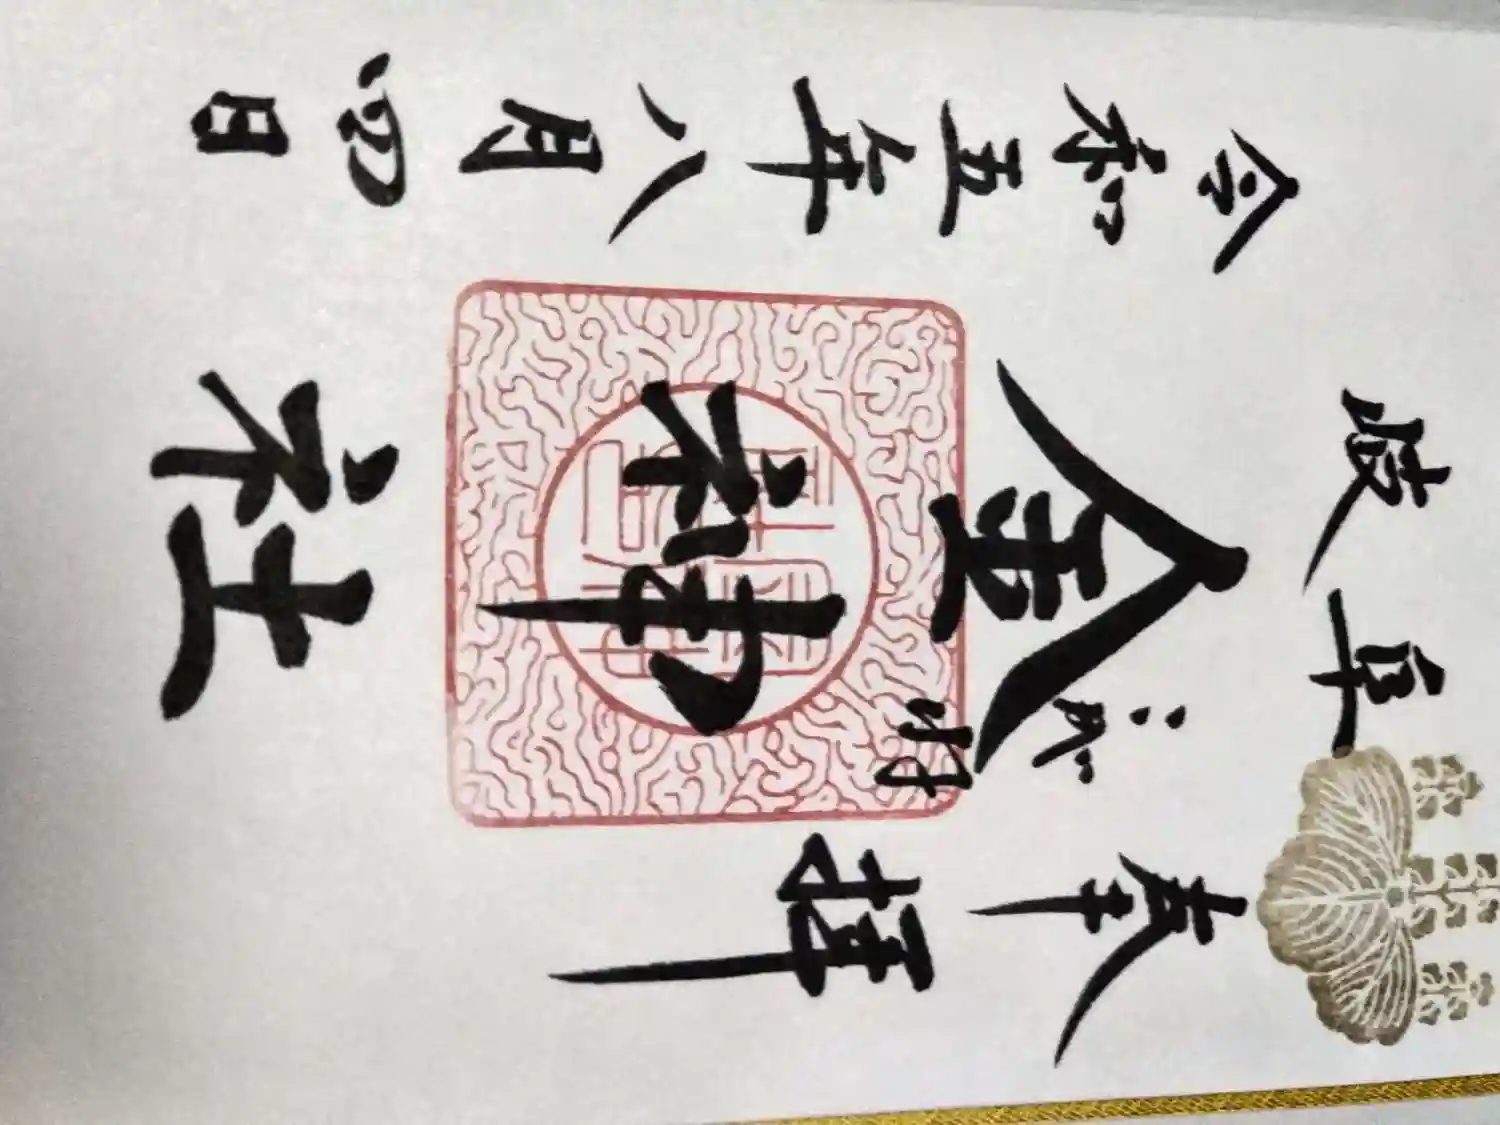 奉拝
こがね
岐阜
金神社
令和五年八月四日